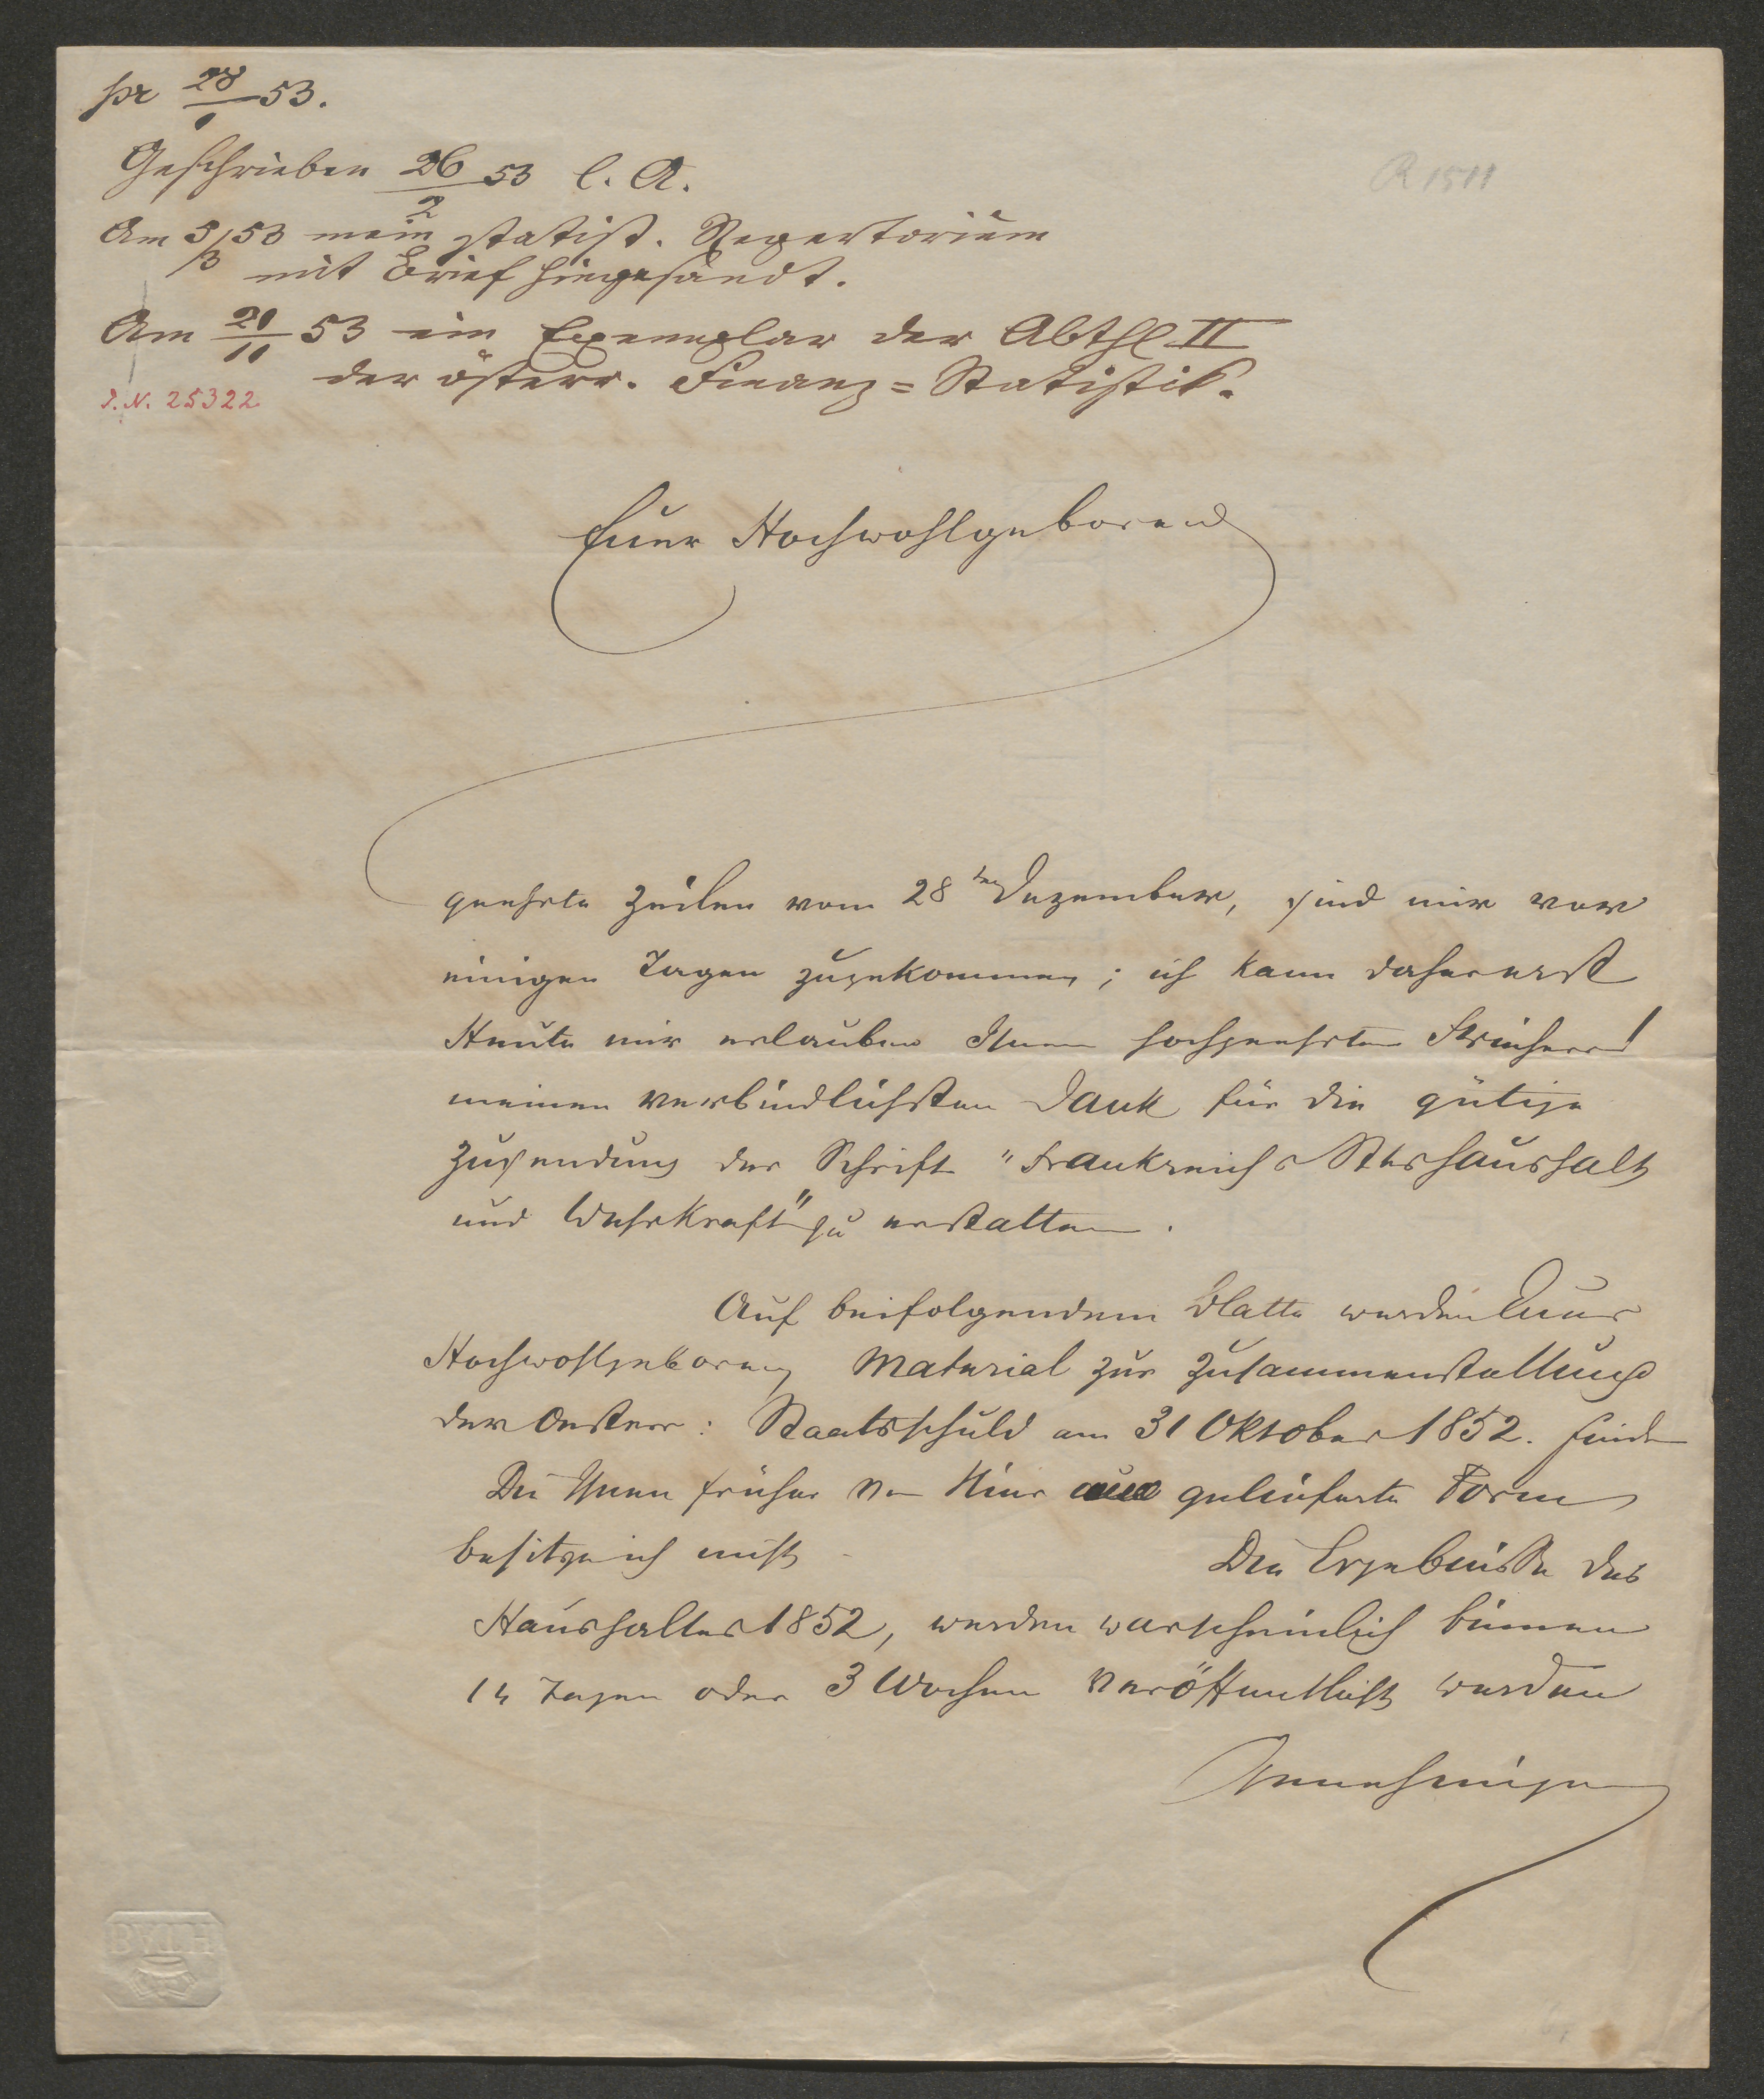 pr 28/1 53.
Geschrieben 26/2 53 l. A.
R 1511
Am 5/3 53 mein statist. Repertorium
mit Brief hingesandt.
Am 20/11 53 ein Exemplar der Abthl II
der österr. Finanz=Statistik.
I.N. 25322
Euer Hochwohlgeboren
geehrte Zeilen vom 28ten Dezember, sind mir vor
einigen Tagen zugekommen; ich kann daher erst
Heute mir erlauben Ihnen hochgeehrter Freiherr!
meinen verbindlichsten Dank für die gütige
Zusendung der Schrift "Frankreichs Stshaushalt
und Wehrkraft" zu erstatten.
Auf beifolgendem Blatte werden Euer
Hochwohlgeboren Material zur Zusammenstellung
der Oesterr: Staatsschuld am 31 Oktober 1852. finden
Die Ihnen früher von Hier aus gelieferte Form
besitze ich nicht
Die Ergebnisse des
Haushaltes 1852, werden warscheinlich binnen
14 Tagen oder 3 Wochen veröffentlicht werden
Genehmigen
BATH